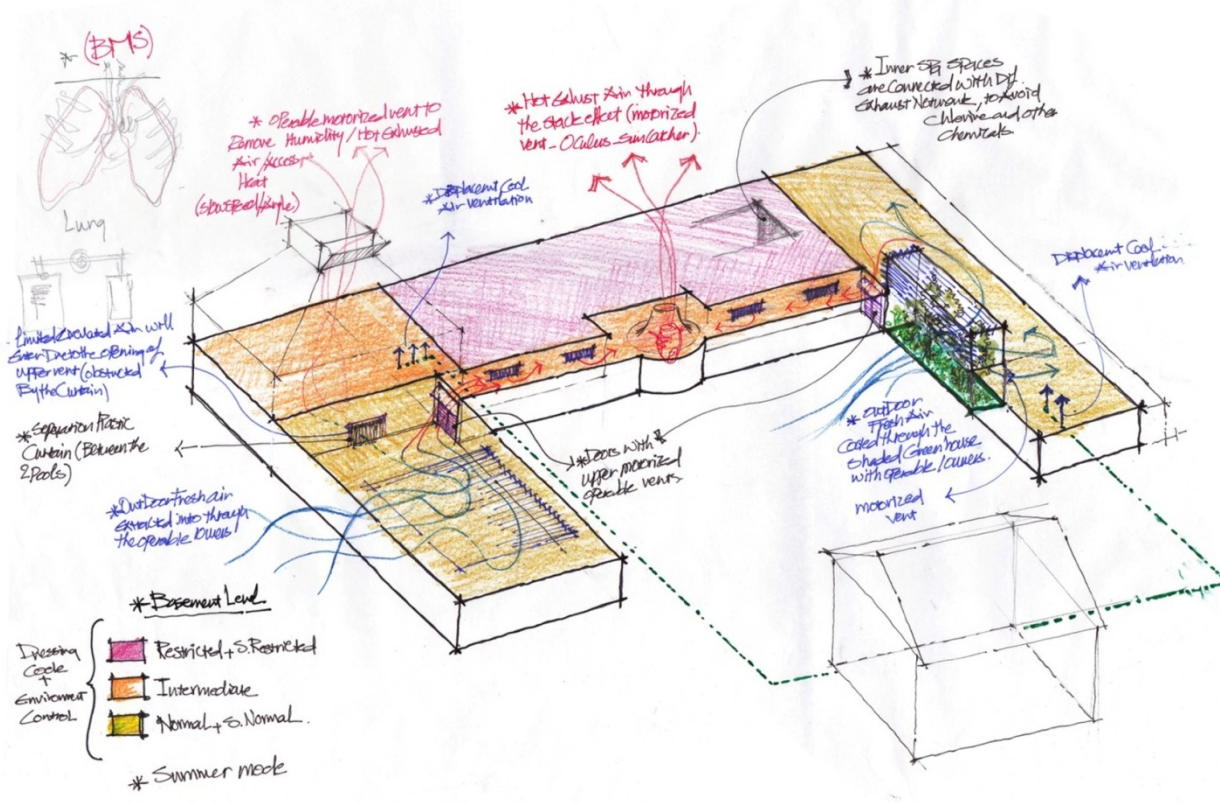 * (BMS)
Lung
* Operable motorized vent to
Remove Humidity / Hot Exhausted
Air / Access
Heat
(slow speed / Angle)
* Displacemt Cool
Air ventilation
* Hot Exhust Air through
the stack effect (motorized
vent - Oculus - suncatcher).
* Inner spa spaces
are Connected with
Exhaust Network, to Avoid
chlorine and other
chemicals
Displacemt Cool
Air ventilation
Limited Air will
Enter Due to the opening of
upper vent (obstructed
By the Curtain)
* Separation Plastic
Curtain (Between the
2 Pools)
* OutDoor Fresh air
Extracted into through
the operable louvers
* Doors with *
upper motorized
operable vents
* OutDoor
Fresh Air
Cooled through the
shaded Green house
with operable louvers.
motorized
vent
* Basement Level
Dressing
Code
+
Environment
Control
Restricted + S. Restricted
Intermediate
Normal + S. Normal.
* Summer mode